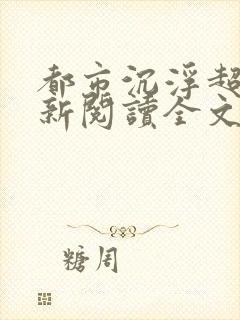 都市沉浮超
新閱讀全文
糖周